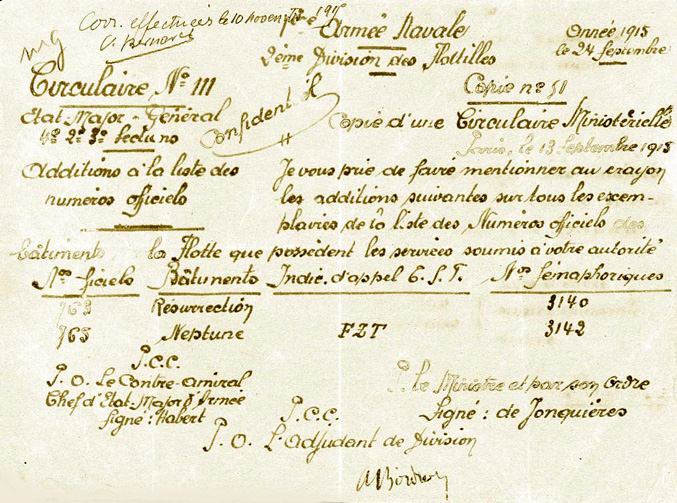 Corr. effectuées le 10 novembre 1915
1ère Armée Navale
Année 1915
2ème Division des Flottilles
le 24 Septembre
Circulaire No 111
Copie no 51
Etat-Major-Général
Confidentiel
1o 2o 3o Sections
Copie d'une Circulaire Ministérielle
Paris, le 13 Septembre 1915
Additions à la liste des
numéros officiels
Je vous prie de faire mentionner au crayon
les additions suivantes sur tous les exem-
plaires de la liste des Numéros officiels des
bâtiments la Flotte que possèdent les services soumis à votre autorité
Nos ficiels Bâtiments Indic. d'appel T.S.F. Nos Sémaphoriques
763 Résurrection 3140
765 Neptune FZT 3142
P.C.C.
P. O. Le Contre-amiral
Chef d'Etat-Major d'Armée
Signé: Habert
P. le Ministre et par son Ordre
Signé: de Jonquières
P.C.C.
P. O. L'adjudant de Division